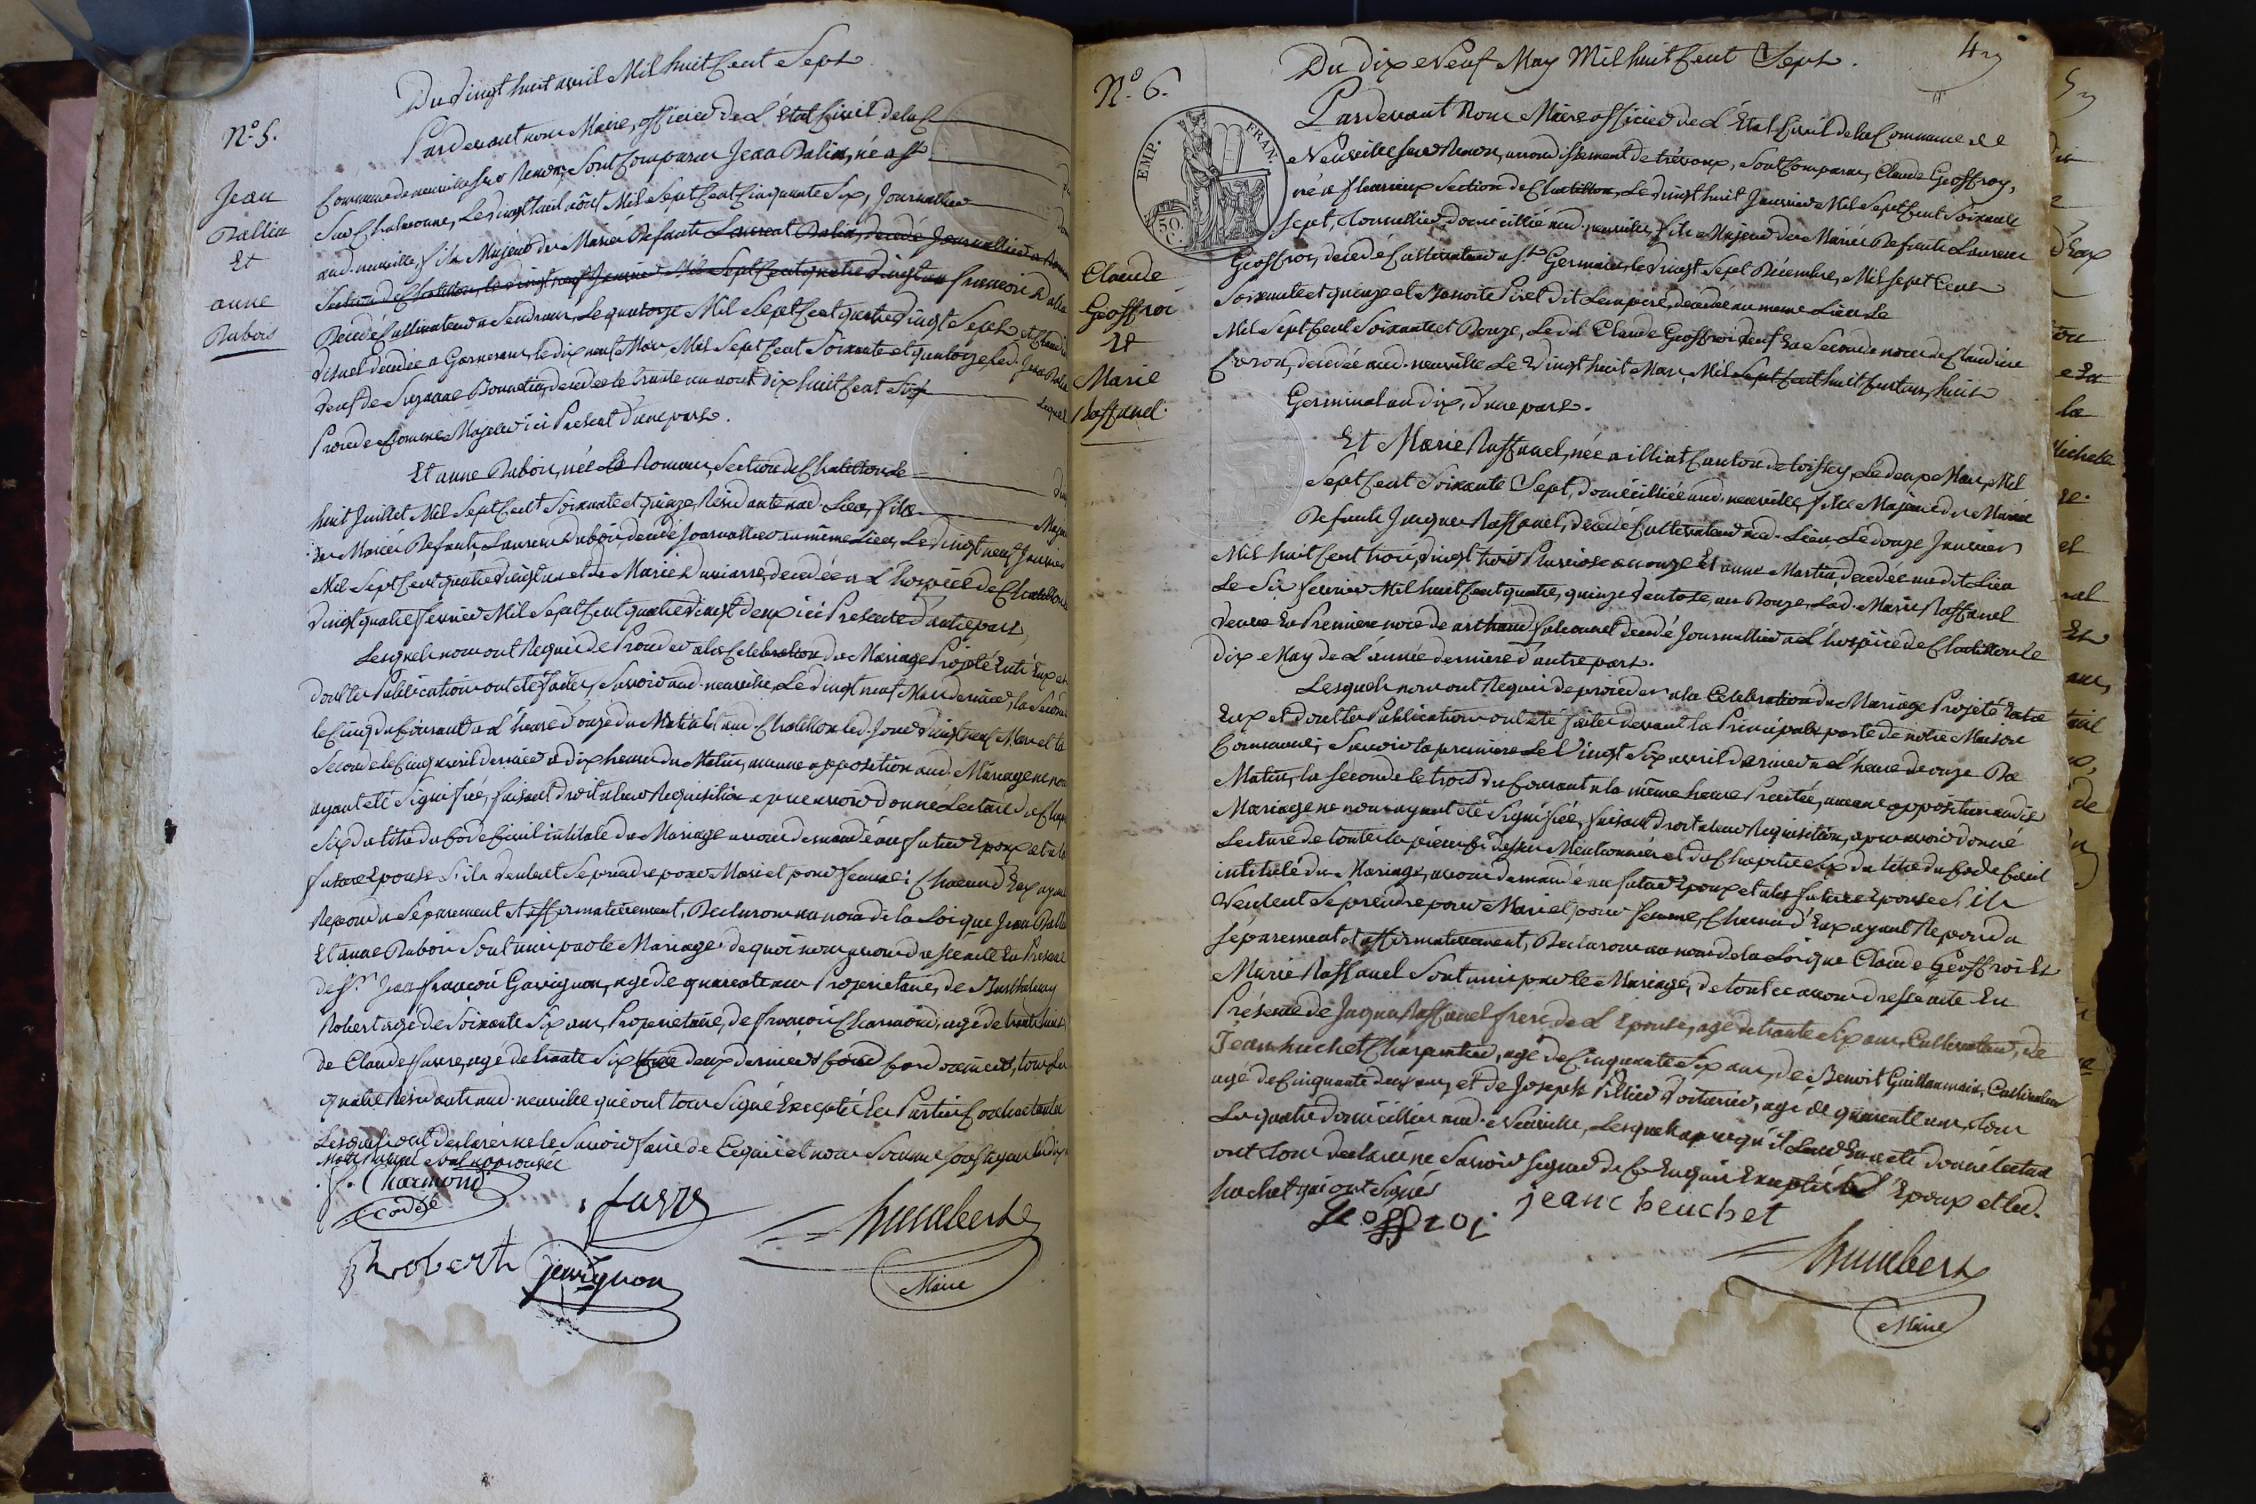 Du vingt huit avril Mil huit Cent Sept
N.º 5.
Jean
Ballin
Et
anne
Dubois
Pardevant nous Maire, officier de L'État Civil de la C
Commune de neuville sur Renon, Sont Comparus Jean Balin, né a St
Sur Chalaronne, Le vingt huit août Mil Sept Cent Cinquante Six, Journallier
aud. neuville, fils Majeur des Mariés Defunts Laurent Balin, decedé Journallier a
Section de Chatillon, le vingt neuf Janvier Mil Sept Cent quatre vingt un francois Balin
Decedé Cultivateur a Sandrans, Le quatorze Mil Sept Cent quatre vingt Sept, et Claudine
decedée a Garnerans, le dix neuf Mars, Mil Sept Cent Soixante et quatorze, led. Jean Balin
veuf de Suzanne Bourdin, decedée le trente un aout dix huit Cent Six
Procede Comme Majeur ici Present d'une part.
Et anne Dubois, née Romans, Section de Chatillon Le
huit Juillet Mil Sept Cent Soixante et quinze, Résidante aud. Lieu, fille
des Mariés Defunts Laurent Dubois, decedé Journallier au même Lieu, Le vingt neuf Janvier
Mil Sept Cent quatre vingt un et de Marie decedée a L'hospice de Chatillon
vingt quatre fevrier Mil Sept Cent quatre vingt deux ici Presente d'autre part
Lesquels nous ont Requis de Proceder a la Celebration du Mariage Projeté Entr'Eux et
dont les Publications ont été faites, Savoir aud. neuville, Le vingt neuf Mars dernier, la Seconde
le Cinq du Courant a L'heure d'onze du Matin Et aud. Chatillon led. Jour vingt neuf Mars et la
Seconde le Cinq avril dernier a dix heures du Matin, aucune opposition aud. Mariage ne nous
ayant été Signifiée, faisant droit a leur Requisition apres avoir donné Lecture du Chap.
Six du titre du Code Civil intitulé du Mariage avons demandé au futur Epoux et a la
future Epouse S'ils veulent Se prendre pour Mari et pour femme; Chacun d'Eux ayant
Repondu Separement et affirmativement, Declarons au nom de la Loi que Jean Ballin
Et anne Dubois Sont unis par le Mariage; de quoi nous avons dressé acte En Presence
de Sr. Jean francois Gavignon, agé de quarante ans Proprietaire, de Barthelemy
Robert agé de Soixante Six ans, Proprietaire, de francois Charmond, agé de trente huit
de Claude favre, agé de trente Six deux derniers Cordonniers, tous Les
quatre Résidants aud. neuville qui ont tous Signé Excepté Les Parties Contractantes
Lesquels ont declaré ne le Savoir faire de Ce
f. Charmond
favre
Humbert
Maire
B robert
gavignon
N.º 6.
Du dix Neuf May Mil huit Cent Sept.
4
EMP. FRAN.
50
C.
Claude
Geoffroi
Et
Marie
Raffanel.
Pardevant Nous Maire officier de L'Etat Civil de la Commune de
Neuville Sur Renon, arrondissement de trévoux, Sont Comparus, Claude Geoffroy,
né a fleurieux Section de Chatillon, Le vingt huit Janvier Mil Sept Cent Soixante
Sept, Journallier, domicillié aud. neuville, fils Majeur des Mariés Defunts Laurent
Geoffroi, decedé Cultivateur a St. Germain, le vingt Sept Décembre, Mil Sept Cent
Soixante et quinze et Benoite Piret dit Lempere, decedée au meme Lieu Le
Mil Sept Cent Soixante et Douze, Led. Claude Geoffroi veuf En Seconde noce de Claudine
Coron, decedée aud. neuville Le Vingt huit Mars Mil Sept Cent huit Cent un, huit
Germinal an dix, d'une part.
Et Marie Raffanel, née a illiat Canton de toissey, Le deux Mars, Mil
Sept Cent Soixante Sept, domicilliée aud. neuville, fille Majeure des Mariés
Defunts Jacques Raffanel, decedé Cultivateur aud. Lieu Le douze Janvier
Mil huit Cent trois, vingt trois Pluviose an onze Et anne Martin, decedée audit Lieu
Le Six fevrier Mil huit Cent quatre, quinze ventose, an Douze, Lad. Marie Raffanel
veuve En Premiere noce de decedé Journallier a L'hospice de Chatillon Le
dix May de L'année derniere d'autre part.
Lesquels nous ont Requis de proceder a la Celebration du Mariage Projeté Entre
Eux et dont les Publications ont été faites devant la Principale porte de notre Maison
Commune; Savoir la premiere Le Vingt Six avril dernier a L'heure de onze Du
Matin, la Seconde le trois du Courant a la même heure Precitée, aucune opposition audit
Mariage ne nous ayant été Signifiée, faisant droit a leur Requisition, apres avoir donné
Lecture de toutes les pièces Ci dessus Mentionnées et du Chapitre Six du titre du Code Civil
intitulé du Mariage, avons demandé au futur Epoux et a la future Epouse S'ils
Veulent Se prendre pour Mari et pour femme, Chacun d'Eux ayant Repondu
séparement et affirmativement, Declarons au nom de la Loi que Claude Geoffroi Et
Marie Raffanel Sont unis par le Mariage, de tout ce avons dressé acte En
Présence de Jaques Raffanel frere de L'Epouse, agé de trante Six ans, Cultivateur, de
Jean huchet Charpentier, agé de Cinquante Six ans, de Benoit Guillaumain, Cultivateur
agé de Cinquante deux ans, et de Joseph Pillier Voiturier, agé de quarante ans, tous
Les quatre domicilliés aud. Neuville, Lesquels apres qu'il leur En a été donné lecture
ont tous declaré ne Savoir Signer de Ce Enquis Excepté led. Epoux et led.
huchet qui ont Signés
Geoffroi
jean cheuchet
Humbert
Maire